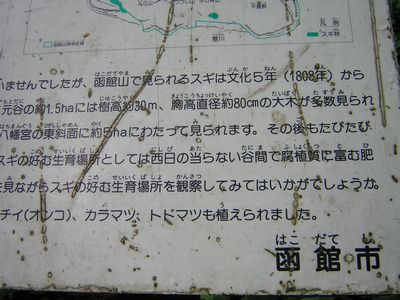 凡例
スギ林
寒川
いませんでしたが、函館山で見られるスギは文化5年（1808年）から
元谷の約1.5haには樹高約30m、胸高直径約80cmの大木が多数見られ
八幡宮の東斜面に約5haにわたって見られます。その後もたびたび
スギの好む生育場所としては西日の当らない谷間で腐植質に富む肥
を見ながらスギの好む生育場所を観察してみてはいかがでしょうか。
チイ(オンコ)、カラマツ、トドマツも植えられました。
はこ だて し
函館市